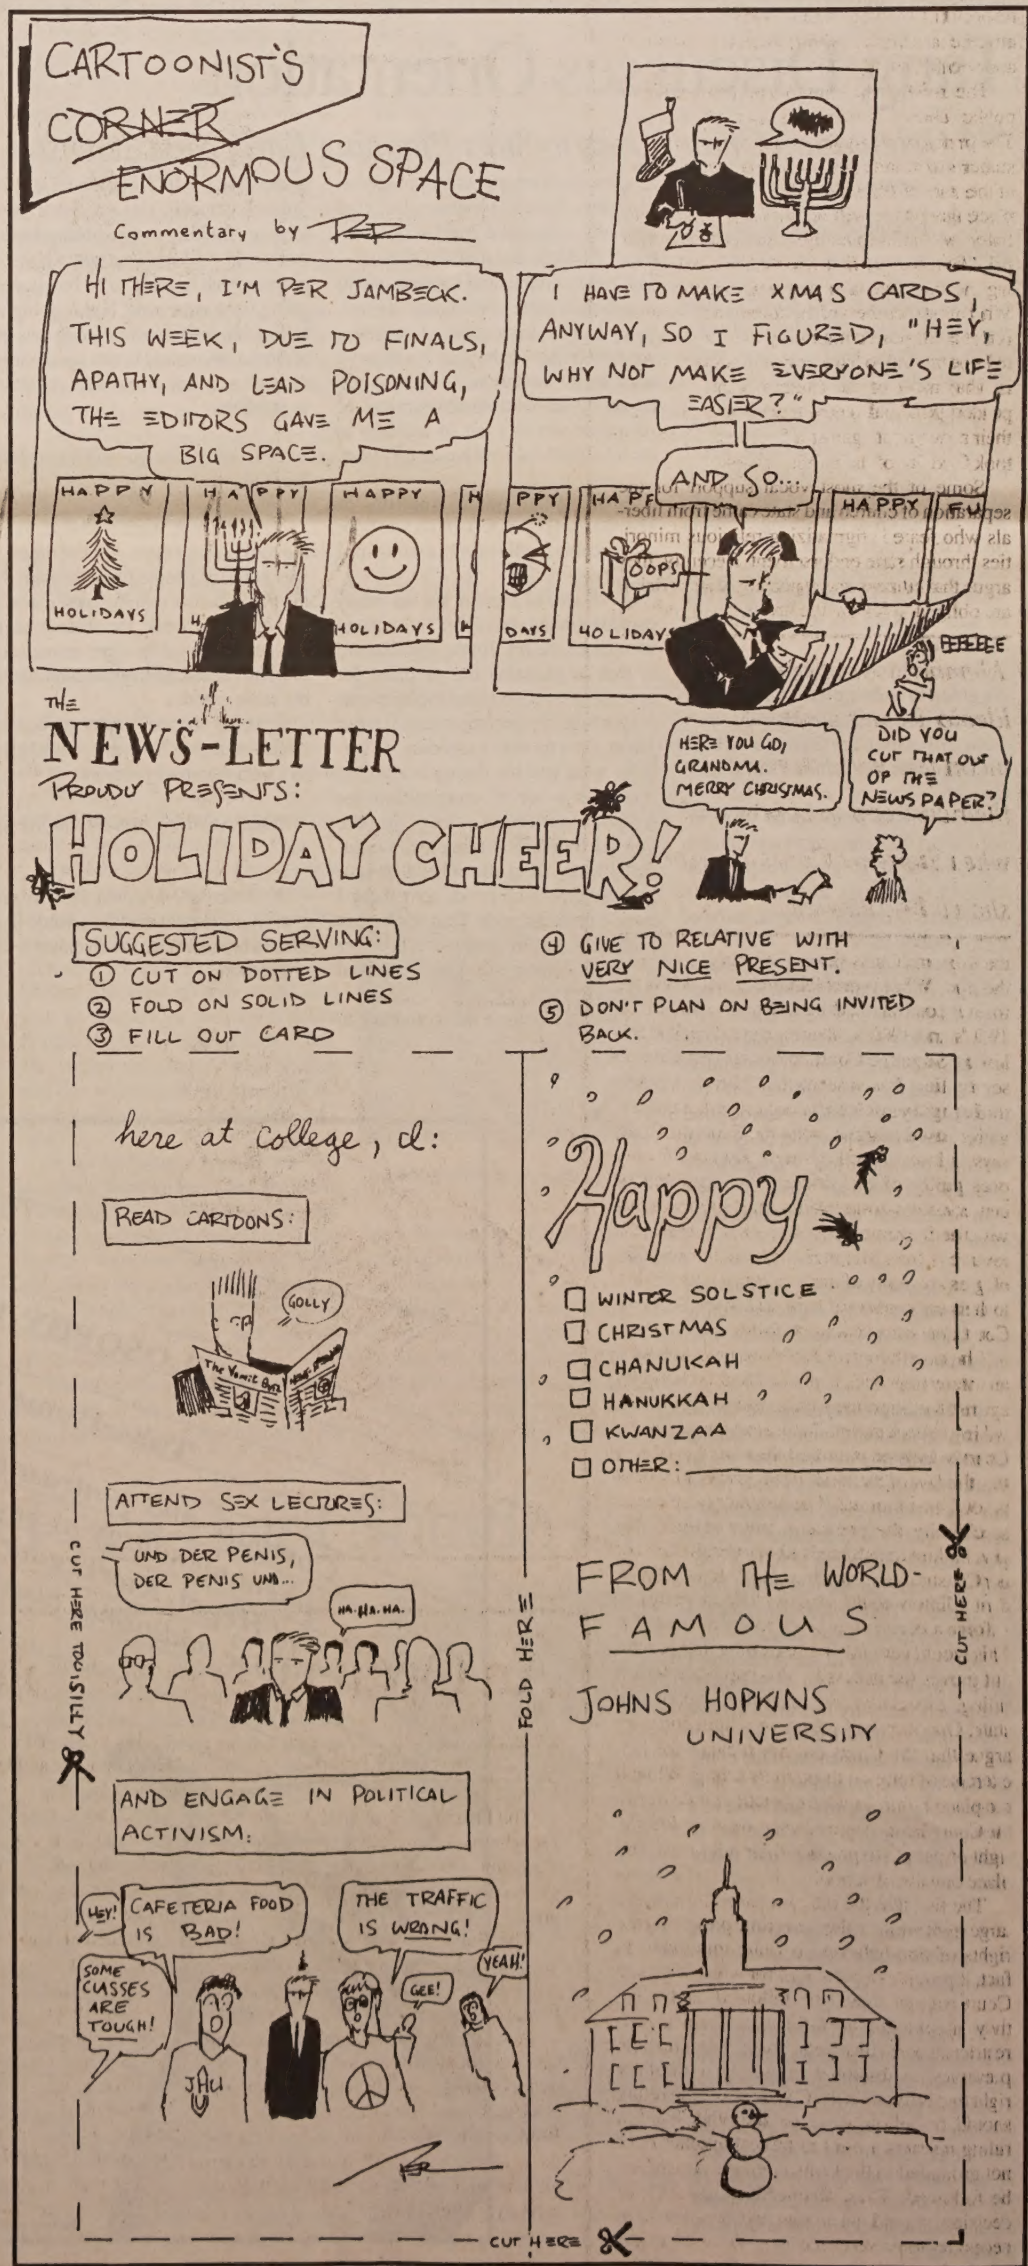 CARTOONIST'S
CORNER
ENORMOUS SPACE
Commentary by PER
HI THERE, I'M PER JAMBECK.
THIS WEEK, DUE TO FINALS,
APATHY, AND LEAD POISONING,
THE EDITORS GAVE ME A
BIG SPACE.
HAPPY
HOLIDAYS
HAPPY
H
HAPPY
HOLIDAYS
H
H
I HAVE TO MAKE XMAS CARDS,
ANYWAY, SO I FIGURED, "HEY,
WHY NOT MAKE EVERYONE'S LIFE
EASIER?"
AND SO...
PPY
DAYS
HAPP
HOLIDAY
OOPS
HAPPY
FU
EEEEEEE
THE
NEWS-LETTER
PROUDLY PRESENTS:
HOLIDAY CHEER!
HERE YOU GO,
GRANDMA.
MERRY CHRISTMAS.
DID YOU
CUT THAT OUT
OF THE
NEWSPAPER?
SUGGESTED SERVING:
① CUT ON DOTTED LINES
② FOLD ON SOLID LINES
③ FILL OUT CARD
④ GIVE TO RELATIVE WITH
VERY NICE PRESENT.
⑤ DON'T PLAN ON BEING INVITED
BACK.
here at college, I:
READ CARTOONS:
GOLLY
The Vomit
ATTEND SEX LECTURES:
UND DER PENIS,
DER PENIS UND...
HA-HA-HA.
CUT HERE TOO, SILLY
AND ENGAGE IN POLITICAL
ACTIVISM:
HEY!
CAFETERIA FOOD
IS BAD!
THE TRAFFIC
IS WRONG!
SOME
CLASSES
ARE
TOUGH!
GEE!
YEAH!
JHU
PER
FOLD HERE
Happy
WINTER SOLSTICE
CHRISTMAS
CHANUKAH
HANUKKAH
KWANZAA
OTHER:
FROM THE WORLD-
FAMOUS
JOHNS HOPKINS
UNIVERSITY
CUT HERE
CUT HERE